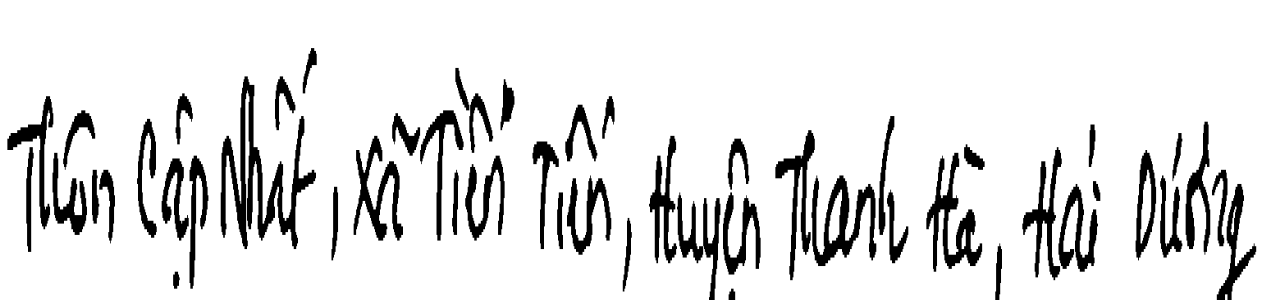 Thôn Cập Nhất, Xã Tiền Tiến, Huyện Thanh Hà, Hải Dương